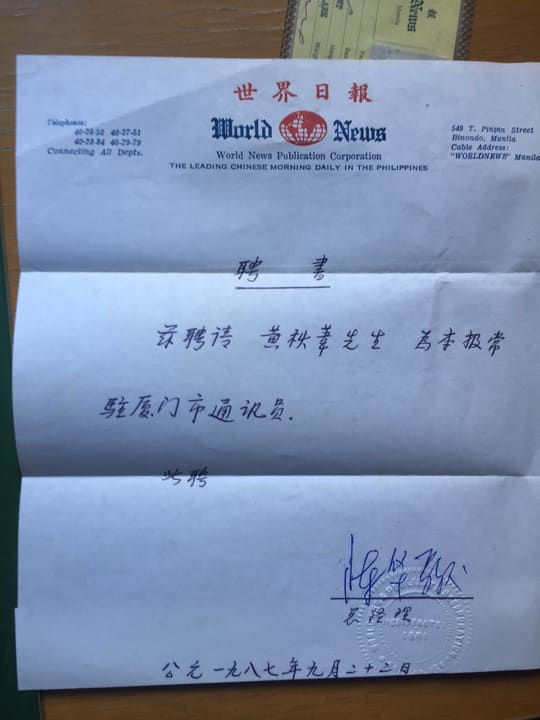 世界日報
World News
World News Publication Corporation
THE LEADING CHINESE MORNING DAILY IN THE PHILIPPINES
Telephones:
40-26-50 40-27-51
40-28-84 40-29-79
Connecting All Depts.
549 T. Pinpin Street
Binondo, Manila
Cable Address:
"WORLDNEWS" Manila
聘 书
兹聘请 黄秋苇先生 为本报常
驻厦门市通讯员.
此聘
总经理
1981
公元一九八七年九月二十二日